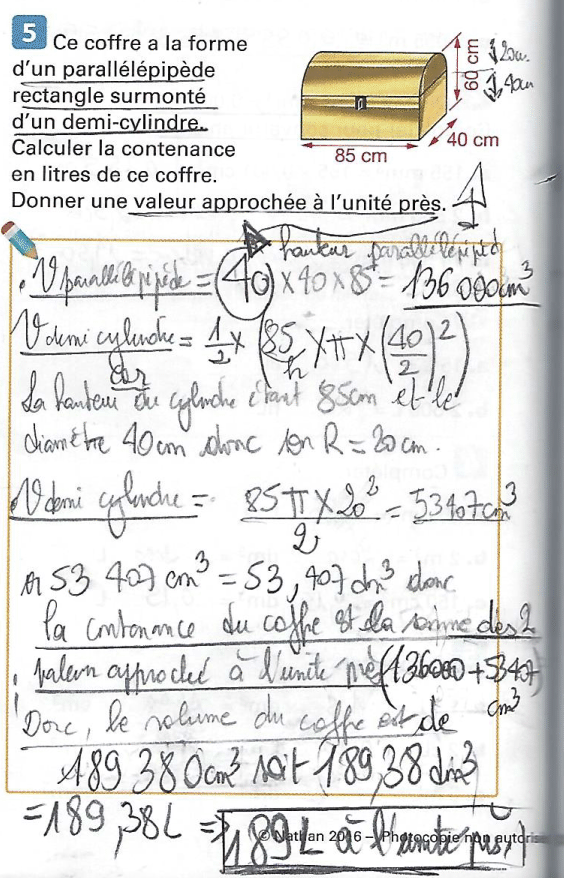 5 Ce coffre a la forme
d'un parallélépipède
rectangle surmonté
d'un demi-cylindre.
Calculer la contenance
en litres de ce coffre.
Donner une valeur approchée à l'unité près.
60 cm
20cm
40cm
40 cm
85 cm
hauteur parallélépipèd
V parallélépipède = 40 × 40 × 85 = 136 000 cm³
V demi cylindre = 1/2 × (85 × π × (40/2)²)
h
car
La hauteur du cylindre étant 85cm et le
diamètre 40 cm donc son R = 20 cm.
V demi cylindre = 85 π × 20² / 2 = 53407 cm³
or 53 407 cm³ = 53,407 dm³ donc
la contenance du coffre est la somme des 2
valeur approché à l'unité près (136000 + 53407
cm³
Donc, le volume du coffre est de
189 380 cm³ soit 189,38 dm³
= 189,38 L ⇒ 189 L à l'unité près
© Nathan 2016 – Photocopie non autoris